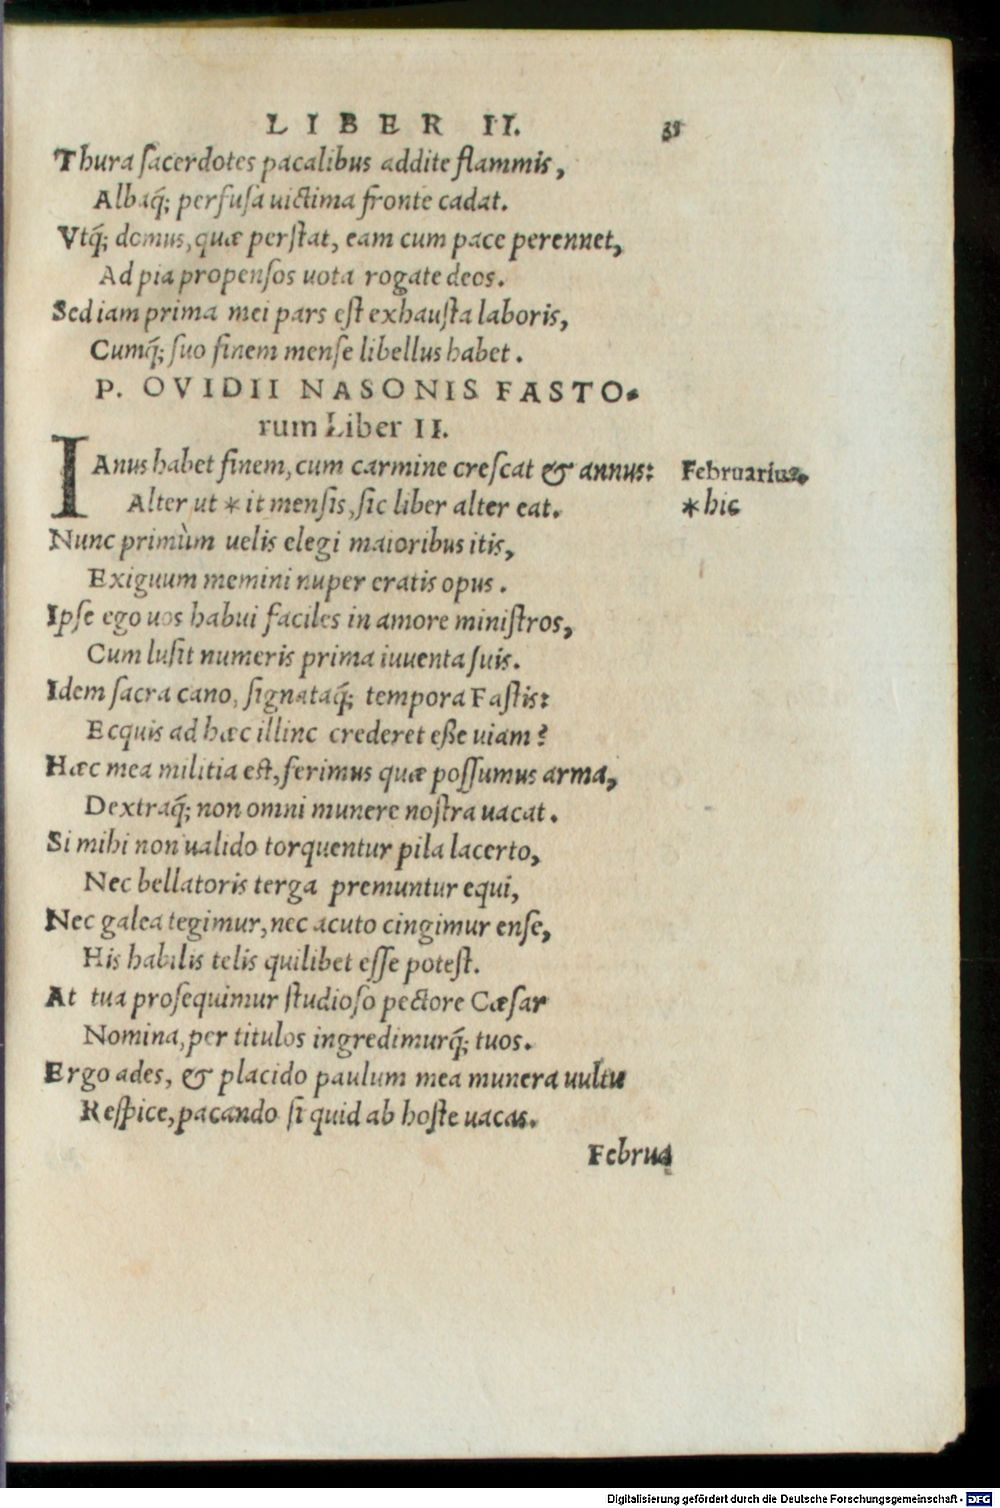 LIBER II. 35
Thura ſacerdotes pacalibus addite flammis,
Albaq́; perfuſa uictima fronte cadat.
Vtq́; domus, quæ perſtat, eam cum pace perennet,
Ad pia propenſos uota rogate deos.
Sed iam prima mei pars eſt exhauſta laboris,
Cumq́; ſuo finem menſe libellus habet.
P. OVIDII NASONIS FASTO-
rum Liber II.
IAnus habet finem, cum carmine creſcat & annus: Februarius.
Alter ut * it menſis, ſic liber alter eat. * hic
Nunc primùm uelis elegi maioribus itis,
Exiguum memini nuper eratis opus.
Ipſe ego uos habui faciles in amore miniſtros,
Cum luſit numeris prima iuuenta ſuis.
Idem ſacra cano, ſignataq́; tempora Faſtis:
Ecquis ad hæc illinc crederet eße uiam?
Hæc mea militia eſt, ferimus quæ poſſumus arma,
Dextraq́; non omni munere noſtra uacat.
Si mihi non ualido torquentur pila lacerto,
Nec bellatoris terga premuntur equi,
Nec galea tegimur, nec acuto cingimur enſe,
His habilis telis quilibet eſſe poteſt.
At tua proſequimur ſtudioſo pectore Cæſar
Nomina, per titulos ingredimurq́; tuos.
Ergo ades, & placido paulum mea munera uultu
Reſpice, pacando ſi quid ab hoſte uacas.
Februa
Digitalisierung gefördert durch die Deutsche Forschungsgemeinschaft - DFG